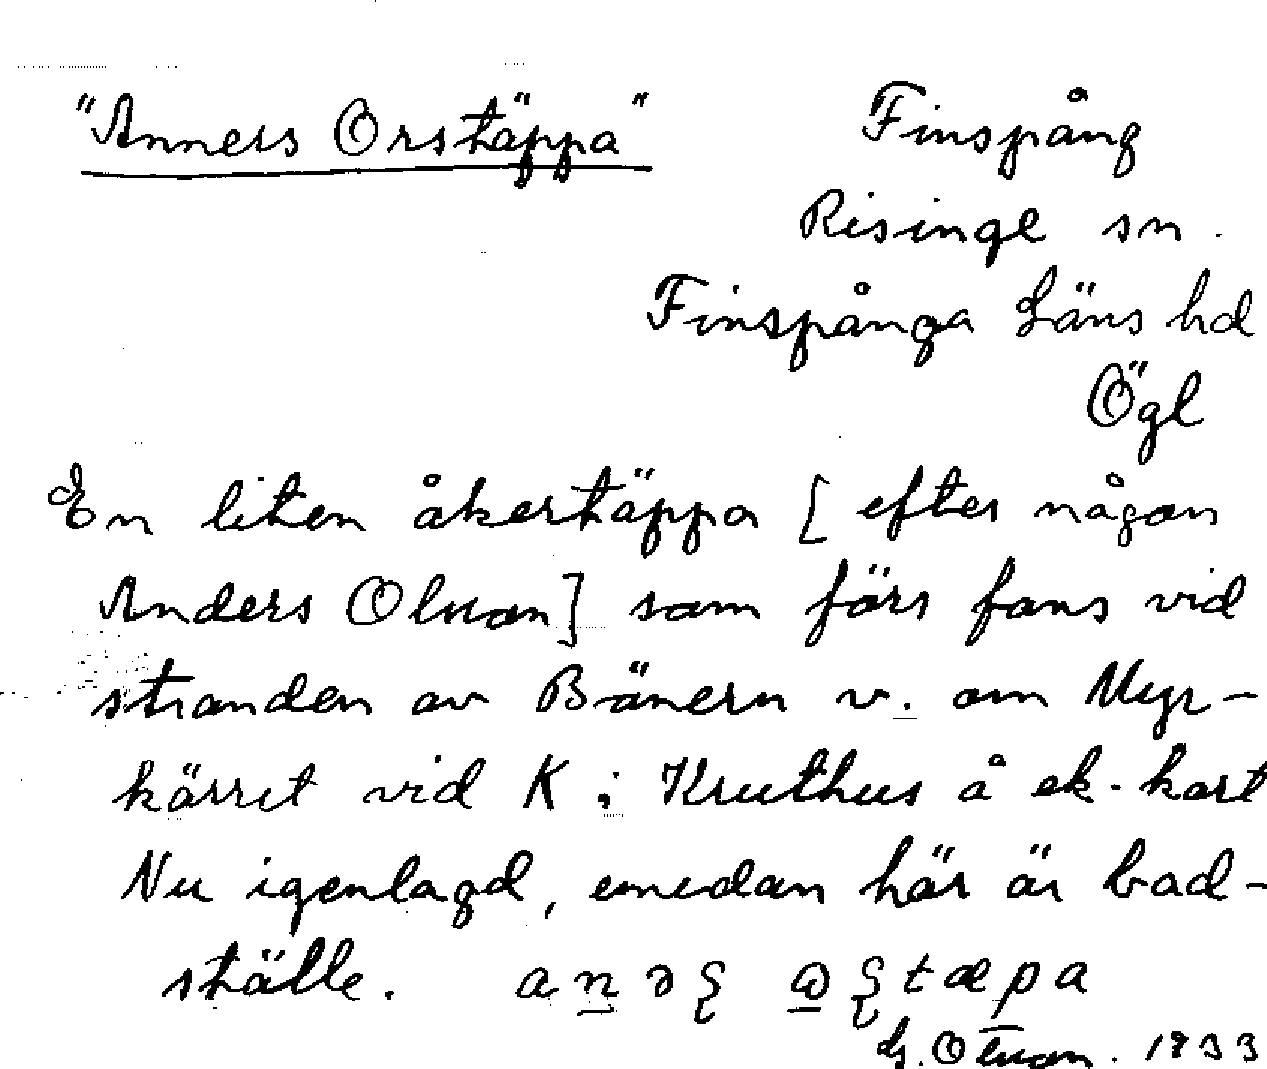 "Anners Orstäppa" Finspång
Risinge sn.
Finspånga Läns hd
Ögl
En liten åkertäppa [efter någon
Anders Olsson] som förs fans vid
stranden av Bänern v. om Myr-
kärret vid K i Kruthus å ek. kart
Nu igenlagd, emedan här är bad-
ställe.
G. 1933